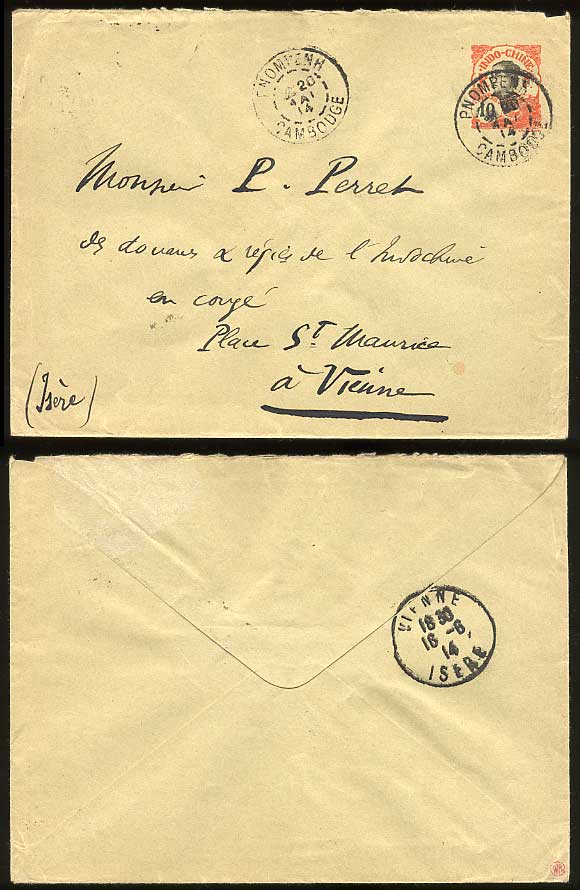 PNOMPENH
20
MAI
14
CAMBODGE
INDO-CHINE
10
PNOMPENH
20
MAI
14
CAMBODGE
Monsieur P. Perret
des douanes & régies de l'Indochine
en congé
Place St Maurice
à Vienne
(Isère)
VIENNE
18 30
16 -6
14
ISERE